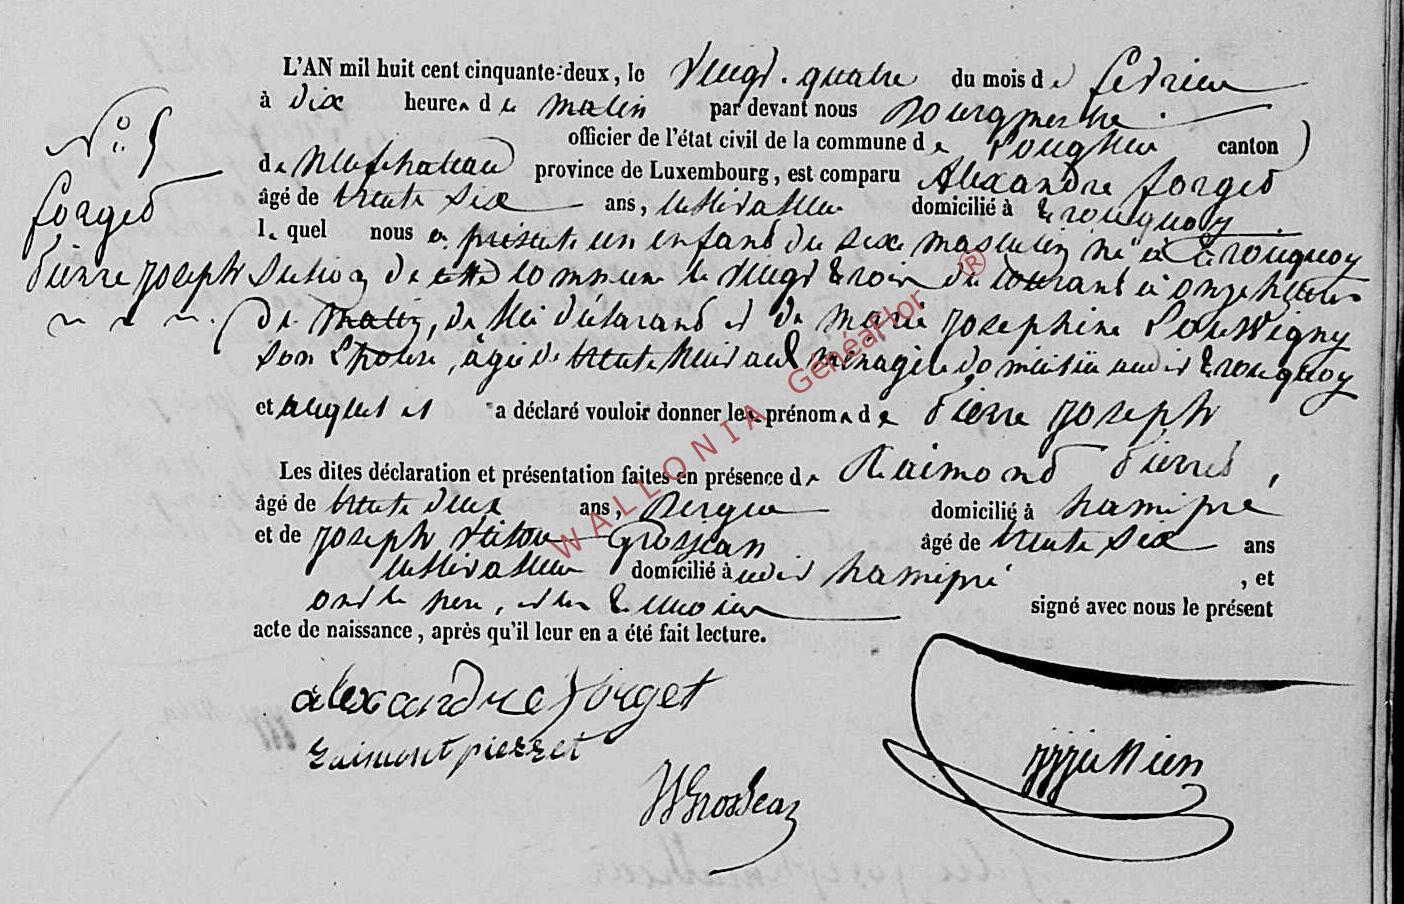 L'AN mil huit cent cinquante-deux, le vingt-quatre du mois de fevrier
à dix heures de matin par devant nous Bourgmestre
officier de l'état civil de la commune de Longlier canton
de Neufchateau province de Luxembourg, est comparu Alexandre forget
âgé de trente six ans, cultivateur domicilié à tronquoy
lequel nous a présenté un enfant du sexe masculin né à tronquoy
section de cette commune le vingt trois du courant à onze heures
du matin, de lui déclarant et de marie josephine
son épouse, âgée de trente huit ans menagère domiciliée audit tronquoy
et auquel il a déclaré vouloir donner les prénoms de Pierre joseph
Les dites déclaration et présentation faites en présence de Raimond Pierret,
âgé de trente deux ans, Berger domicilié à hamipré
et de joseph Grosjean âgé de trente six ans
cultivateur domicilié à audit hamipré, et
ont le pere, et les temoins signé avec nous le présent
acte de naissance, après qu'il leur en a été fait lecture.
N° 5
forget
Pierre joseph
alexandre forget
raimont pierret
Grosjean
WALLONIA GenéaFlor ®